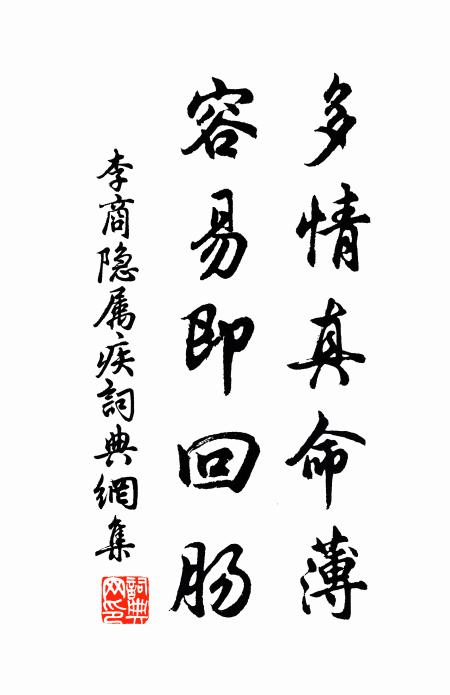 多情真命薄
容易即回肠
李商隐属疾詞典網集
詞典網印